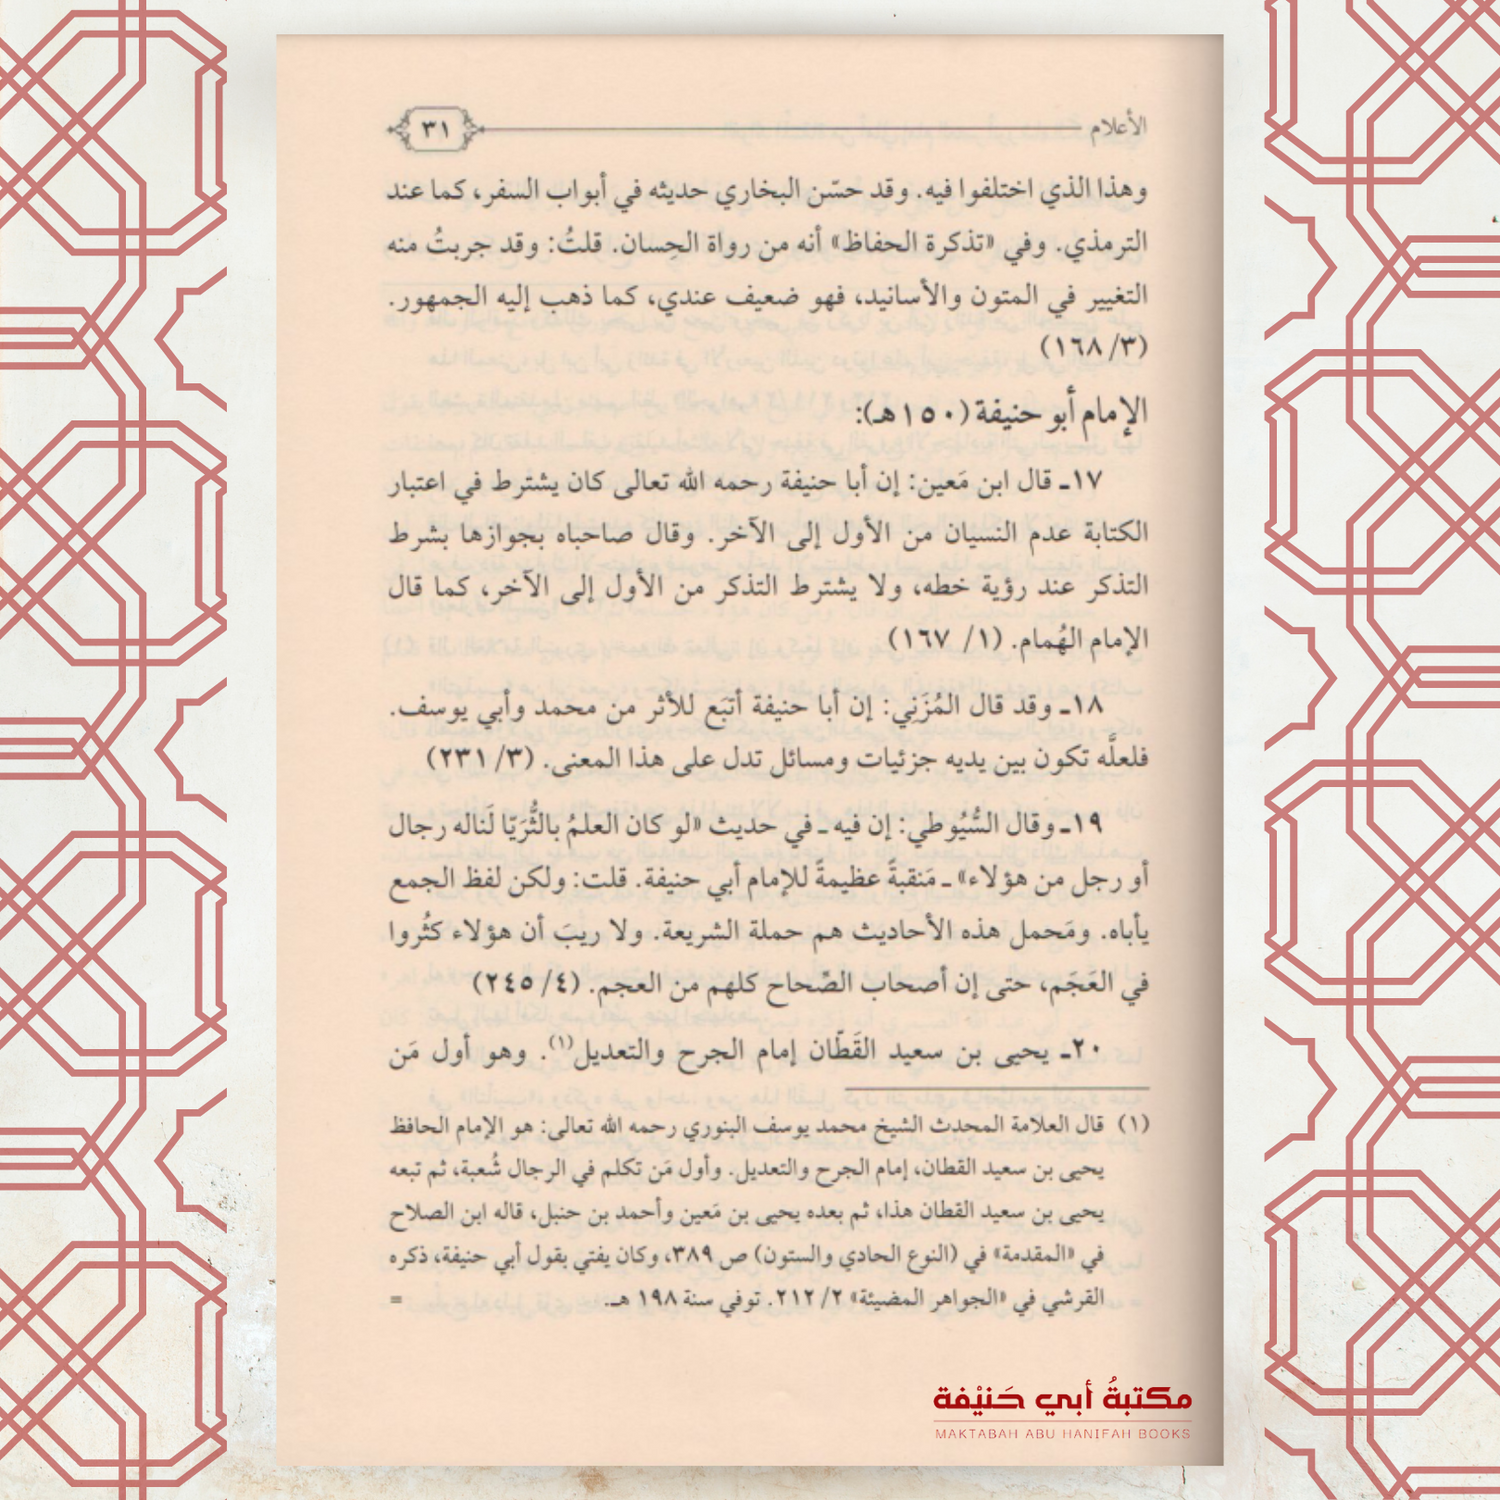 الأعلام ٣١
وهذا الذي اختلفوا فيه. وقد حسّن البخاري حديثه في أبواب السفر، كما عند
الترمذي. وفي «تذكرة الحفاظ» أنه من رواة الحِسان. قلتُ: وقد جربتُ منه
التغيير في المتون والأسانيد، فهو ضعيف عندي، كما ذهب إليه الجمهور.
(٣/ ١٦٨)
الإمام أبو حنيفة (١٥٠هـ):
١٧ـ قال ابن مَعين: إن أبا حنيفة رحمه الله تعالى كان يشترط في اعتبار
الكتابة عدم النسيان من الأول إلى الآخر. وقال صاحباه بجوازها بشرط
التذكر عند رؤية خطه، ولا يشترط التذكر من الأول إلى الآخر، كما قال
الإمام الهُمام. (١/ ١٦٧)
١٨ـ وقد قال المُزَنِي: إن أبا حنيفة أتبَع للأثر من محمد وأبي يوسف.
فلعلَّه تكون بين يديه جزئيات ومسائل تدل على هذا المعنى. (٣/ ٢٣١)
١٩ـ وقال السُّيُوطي: إن فيه ـ في حديث «لو كان العلمُ بالثُّرَيّا لَناله رجال
أو رجل من هؤلاء» ـ مَنقبةً عظيمةً للإمام أبي حنيفة. قلت: ولكن لفظ الجمع
يأباه. ومَحمل هذه الأحاديث هم حملة الشريعة. ولا ريبَ أن هؤلاء كثُروا
في العَجَم، حتى إن أصحاب الصِّحاح كلهم من العجم. (٤/ ٢٤٥)
٢٠ـ يحيى بن سعيد القَطّان إمام الجرح والتعديل(١). وهو أول مَن
(١) قال العلامة المحدث الشيخ محمد يوسف البنوري رحمه الله تعالى: هو الإمام الحافظ
يحيى بن سعيد القطان، إمام الجرح والتعديل. وأول مَن تكلم في الرجال شُعبة، ثم تبعه
يحيى بن سعيد القطان هذا، ثم بعده يحيى بن مَعين وأحمد بن حنبل، قاله ابن الصلاح
في «المقدمة» في (النوع الحادي والستون) ص ٣٨٩، وكان يفتي بقول أبي حنيفة، ذكره
القرشي في «الجواهر المضيئة» ٢/ ٢١٢. توفي سنة ١٩٨ هـ. =
مكتبةُ أبي حَنيْفة
MAKTABAH ABU HANIFAH BOOKS